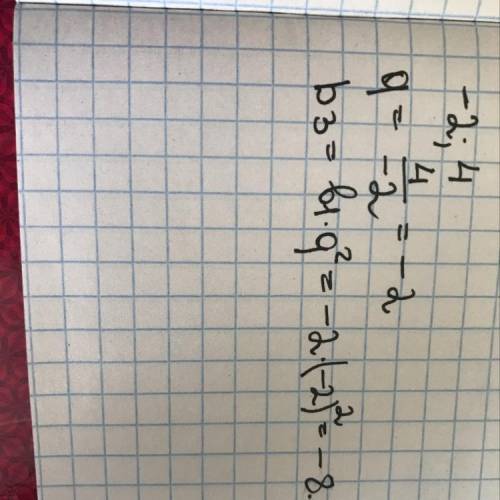 -2; 4
q = 4/-2 = -2
b3 = b1 · q² = -2 · (-2)² = -8.